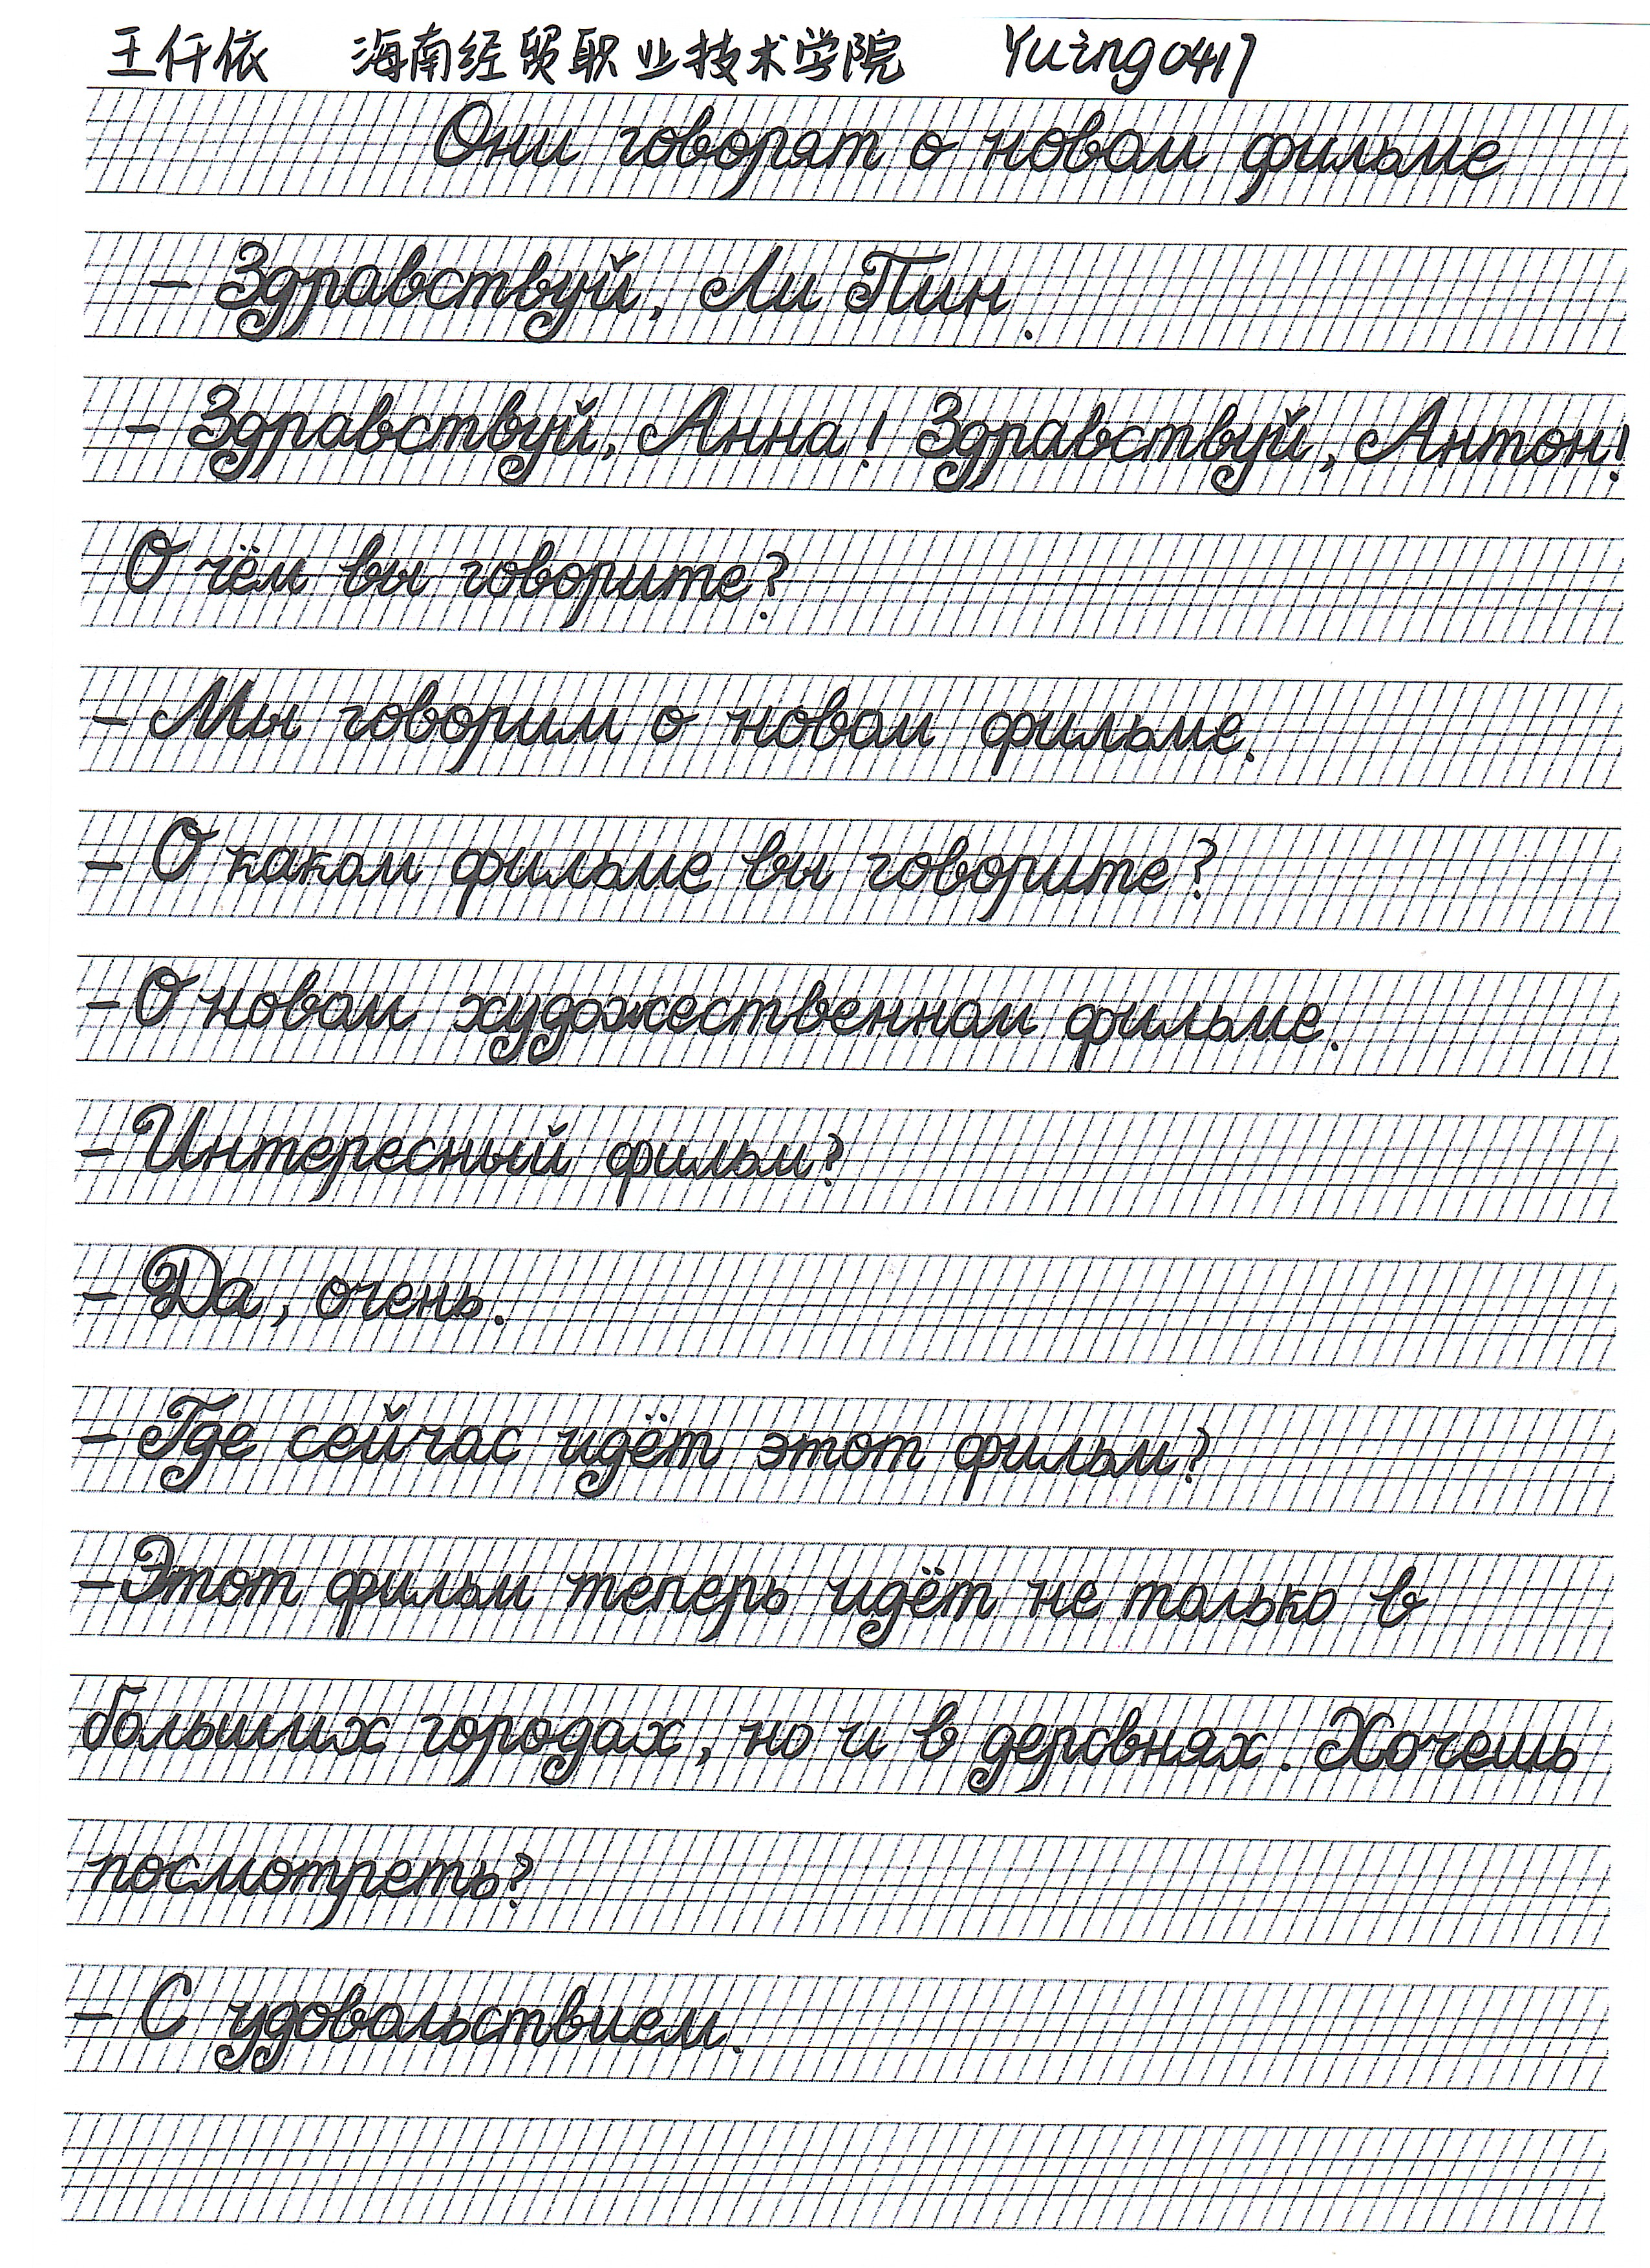 王仟依 海南经贸职业技术学院 Yuing0417
Они говорят о новом фильме
– Здравствуй, Ли Пин.
– Здравствуй, Анна! Здравствуй, Антон!
О чём вы говорите?
– Мы говорим о новом фильме.
– О каком фильме вы говорите?
– О новом художественном фильме.
– Интересный фильм?
– Да, очень.
– Где сейчас идёт этот фильм?
– Этот фильм теперь идёт не только в
больших городах, но и в деревнях. Хочешь
посмотреть?
– С удовольствием.